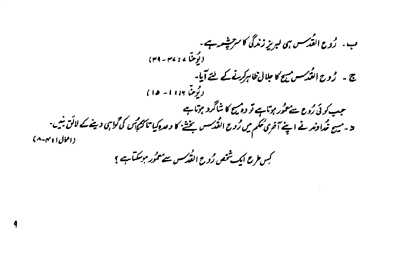 ب ۔ رُوح القُدس ہی لبریز زندگی کا سرچشمہ ہے۔
(یُوحنّا ۷:۳۷-۳۹)
ج ۔ رُوح القُدس مسیح کا جلال ظاہر کرنے کے لئے آیا۔
(یُوحنّا ۱۶:۱-۱۵)
جب کوئی رُوح سے معمُور ہوتا ہے تو وہ مسیح کا شاگرد ہوتا ہے
د ۔ مسیح خُداوند نے اپنے آخری حُکم میں رُوح القُدس بخشنے کا وعدہ کیا تاکہ ہم اُس کی گواہی دینے کے لائق بنیں۔
(اعمال ۱:۴-۸)
کِس طرح ایک شخص رُوح القُدس سے معمُور ہو سکتا ہے ؟
۹